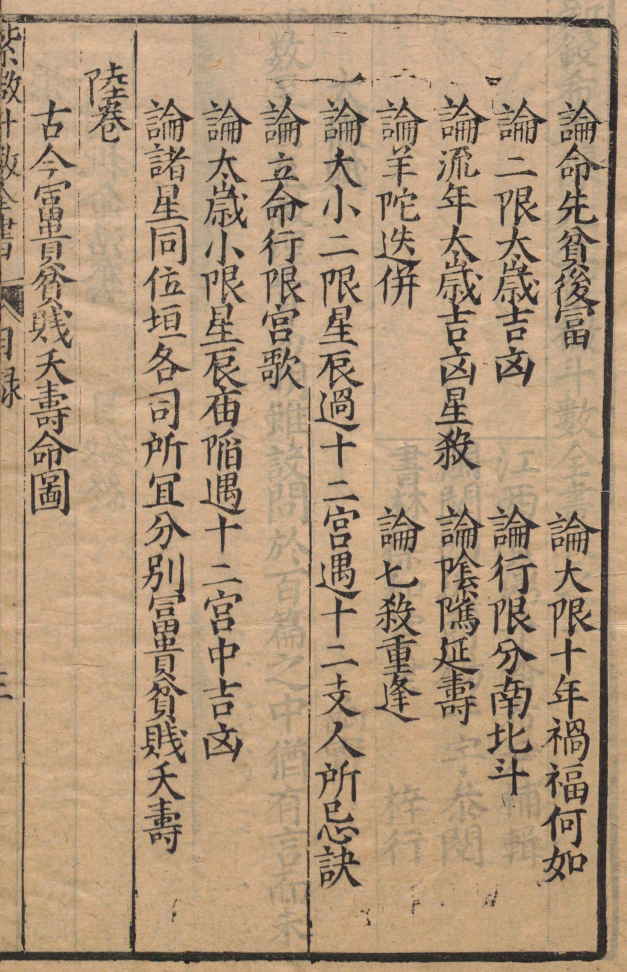 論命先貧後富　論大限十年禍福何如
論二限太歲吉凶　論行限分南北斗
論流年太歲吉凶星殺　論陰隲延壽
論羊陀迭併　論七殺重逢
論大小二限星辰過十二宮遇十二支人所忌訣
論立命行限宮歌
論太歲小限星辰庙陷遇十二宮中吉凶
論諸星同位垣各司所宜分別富貴貧賤夭壽
陸卷
古今富貴貧賤夭壽命圖
目録